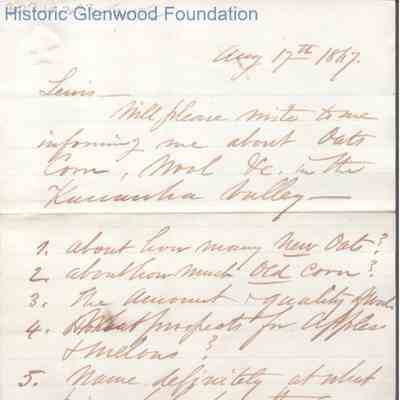 Historic Glenwood Foundation
Aug 17th 1867.
Lewis—
Will please write to me
informing me about Oats
Corn, Wool &c. in the
Kanawha Valley—
1. about how many New Oats?
2. about how much Old Corn?
3. The amount & quality of
4. What prospects for Apples
& melons?
5. Name definitely at what